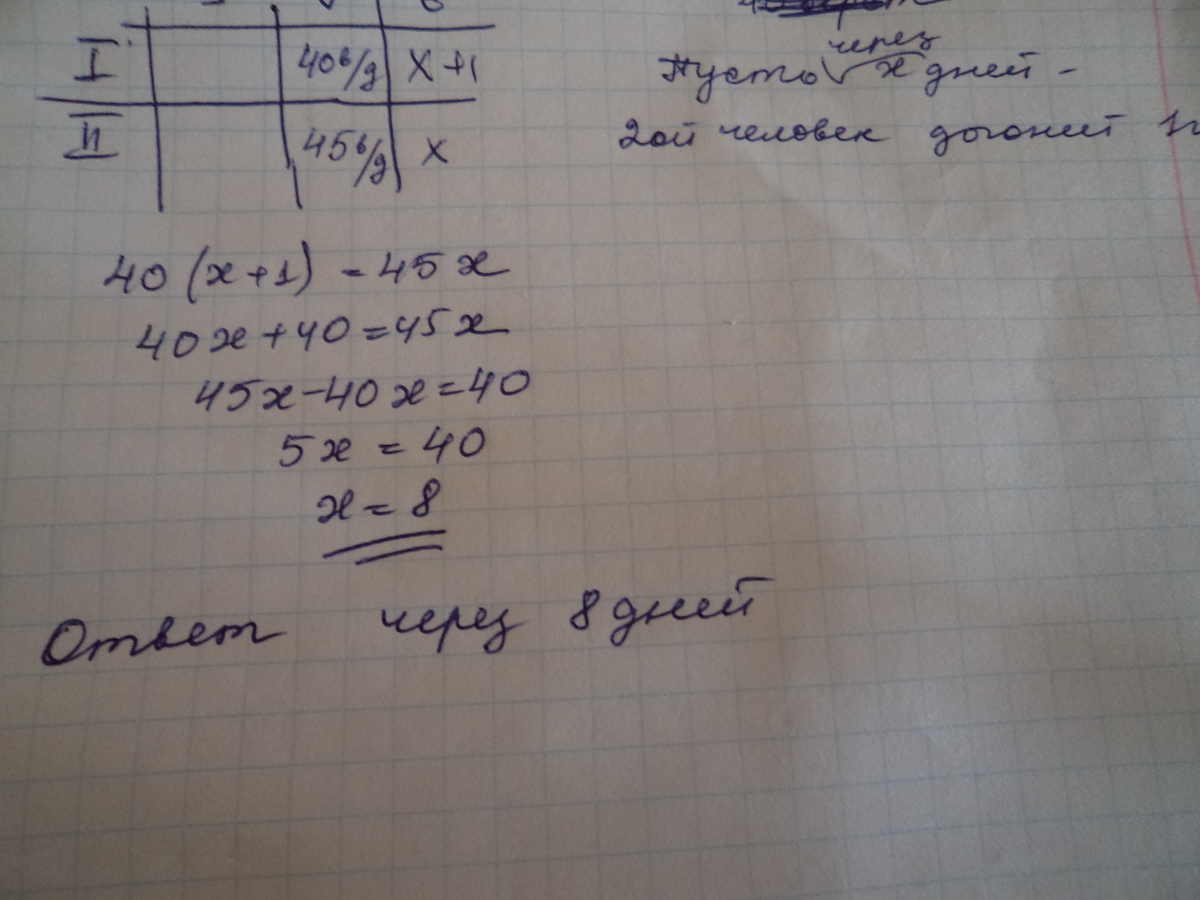 I 40в/д x+1
Пусть через x дней -
II 45в/д x
2ой человек догонит 1г
40(x+1) = 45x
40x+40=45x
45x-40x=40
5x = 40
x = 8
Ответ через 8 дней